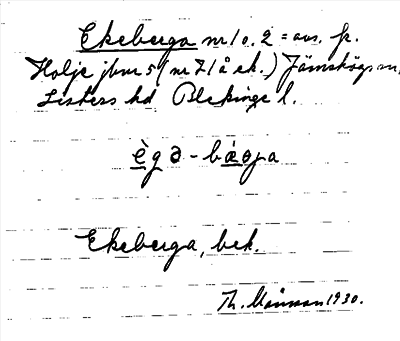 Ekeberga nr 1 o. 2 = avs. fr.
Holje jbnr 5 (nr 7 1 å ek.) Jämshögs sn.
Listers hd Blekinge l.
ègə - bæ̀rja
Ekeberga, beh.
Th. Månsson 1930.